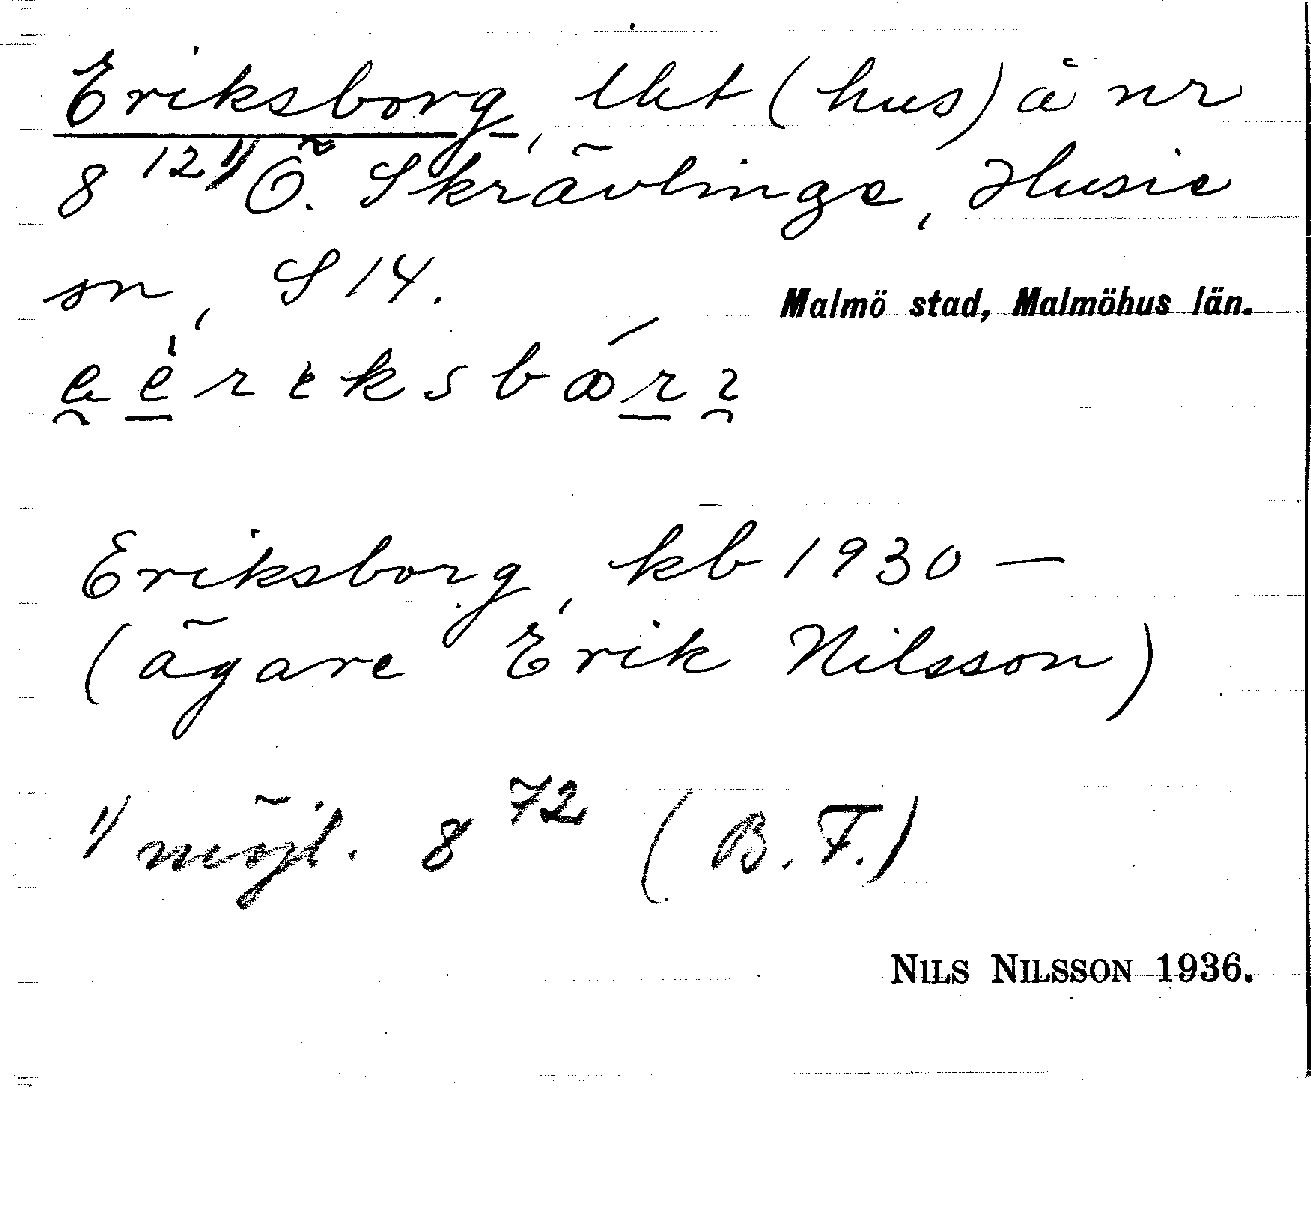 Eriksborg, lht (hus) å nr
8¹²¹⁾ Ö. Skrävlinge, Husie
sn, S 14.
Malmö stad, Malmöhus län.
Eriksborg, kb 1930 —
(ägare Erik Nilsson)
1) möjl. 8⁷² (B. F.)
NILS NILSSON 1936.